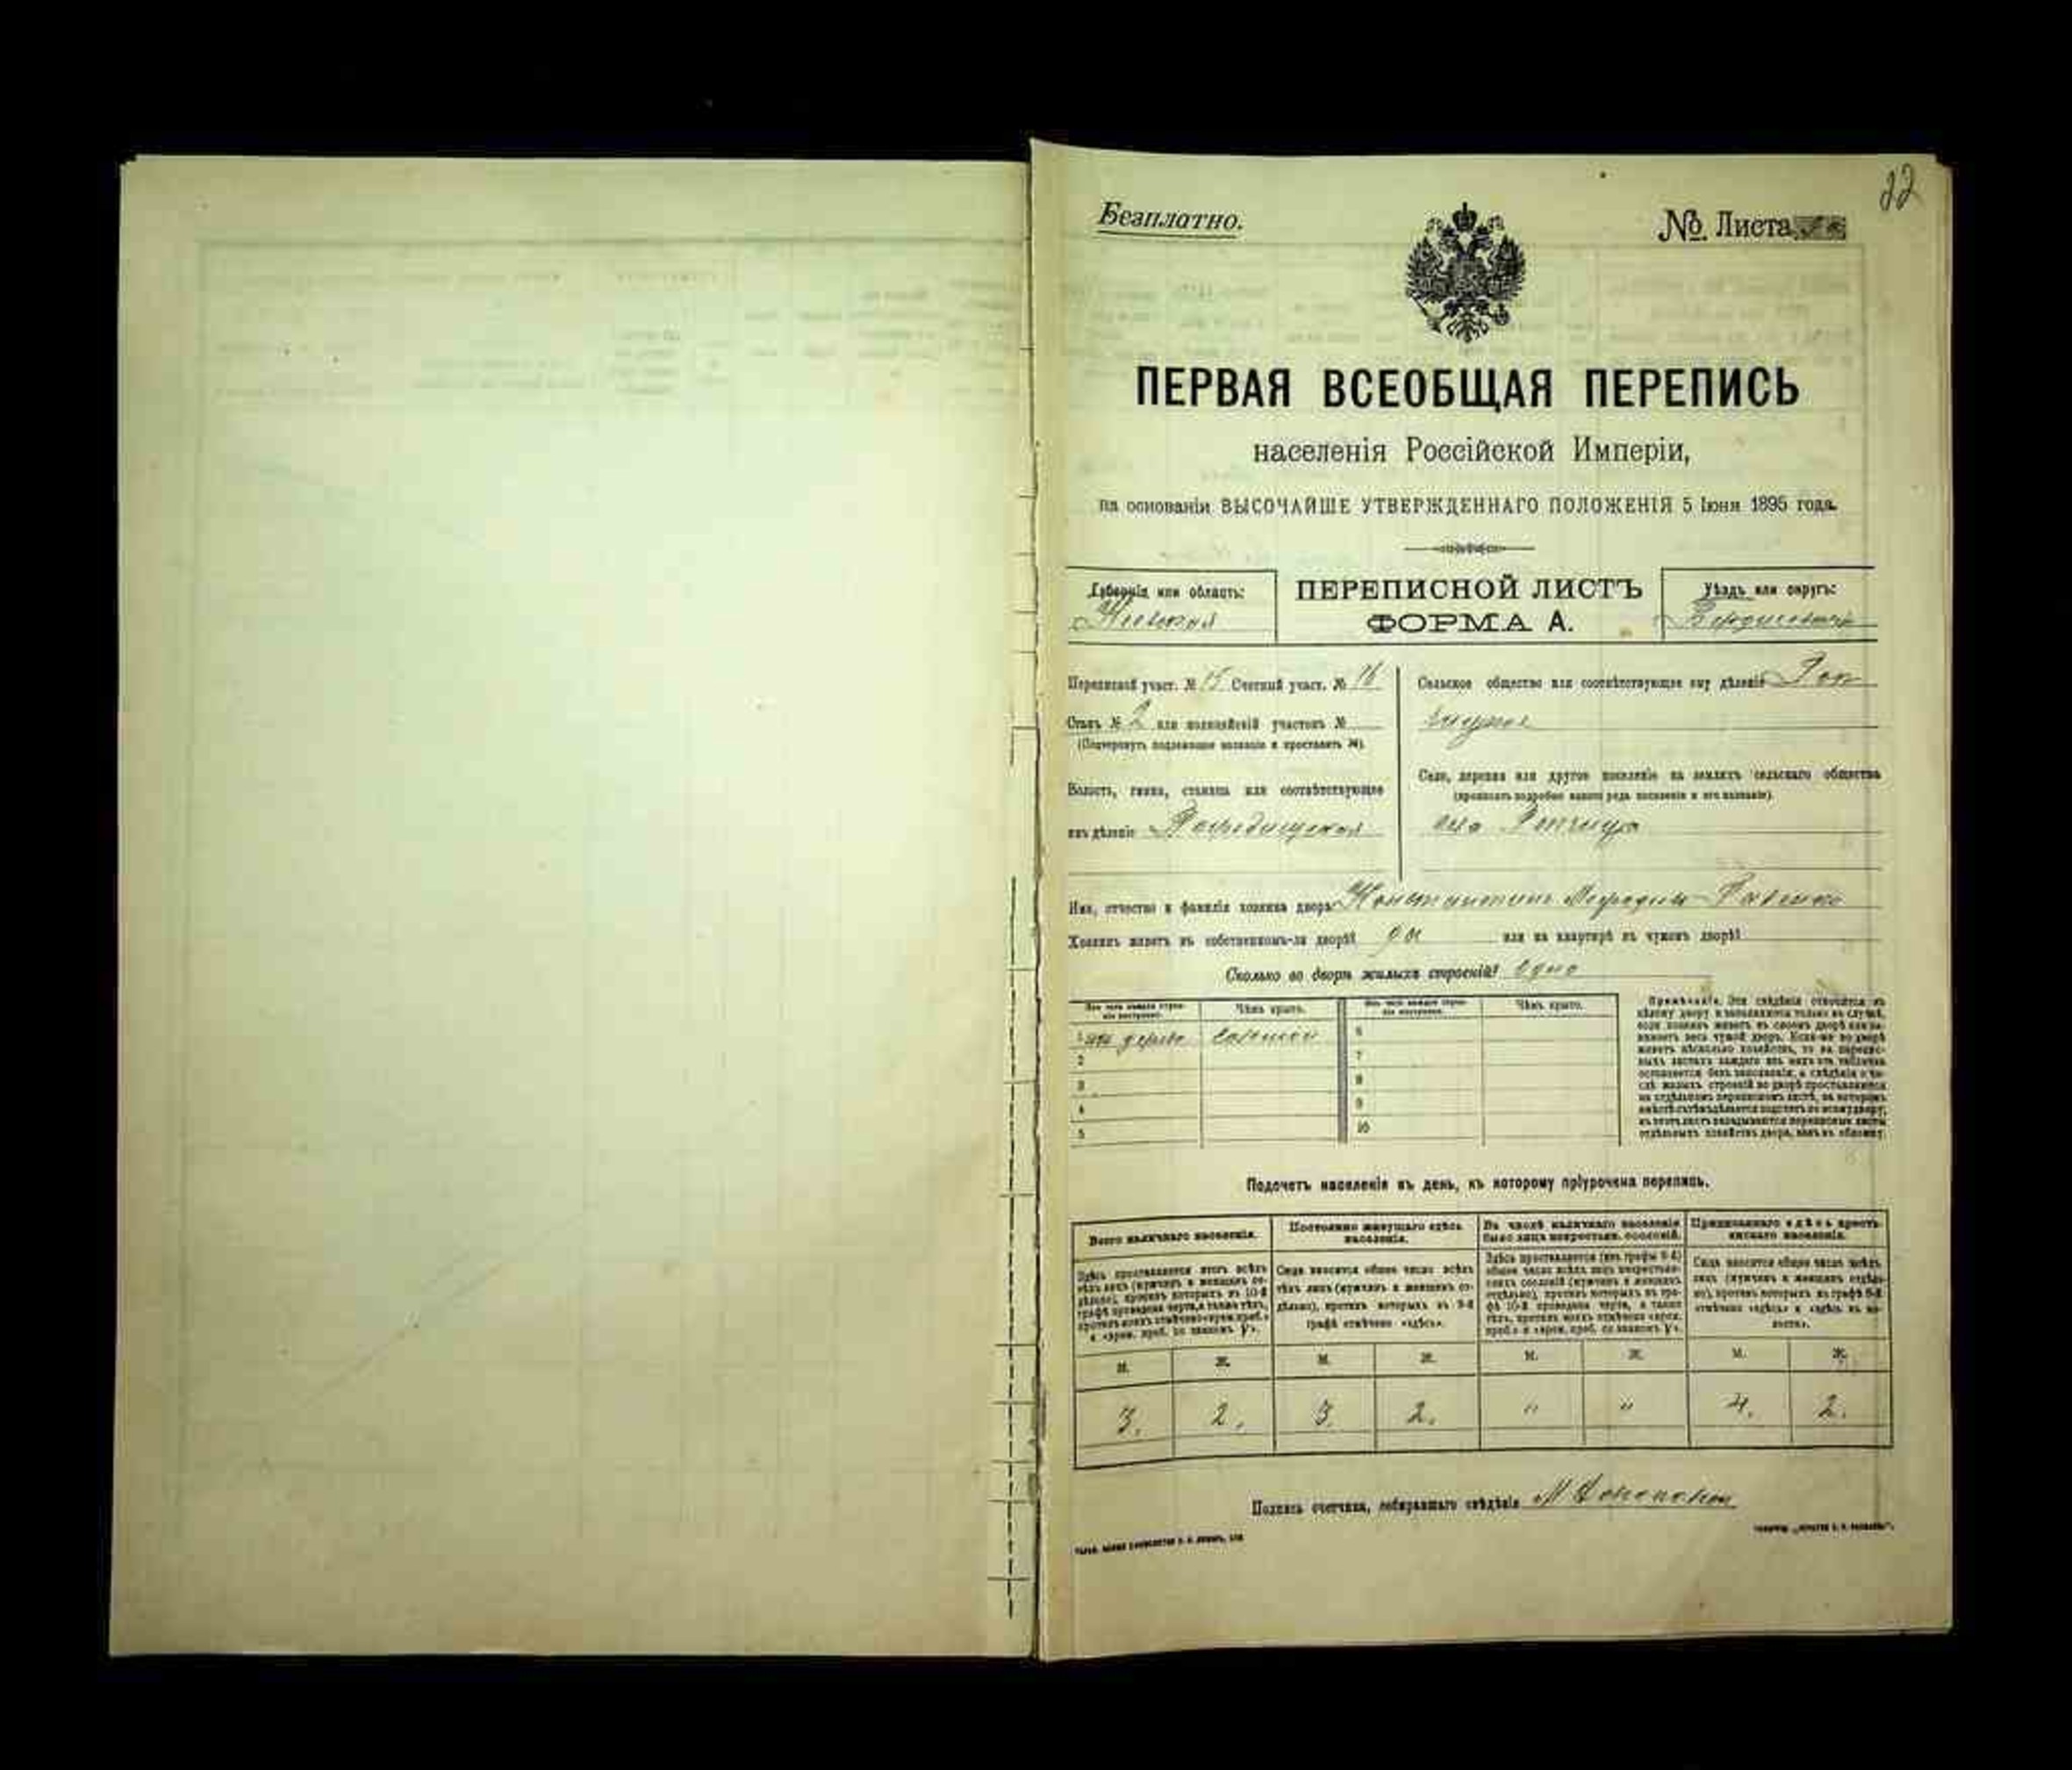 22
Безплатно.
№ Листа
ПЕРВАЯ ВСЕОБЩАЯ ПЕРЕПИСЬ
населенія Россійской Имперіи,
на основаніи ВЫСОЧАЙШЕ УТВЕРЖДЕННАГО ПОЛОЖЕНІЯ 5 Іюня 1895 года.
Губернія или область:
Кіевская
ПЕРЕПИСНОЙ ЛИСТЪ
ФОРМА А.
Уѣздъ или округъ:
Бердичевскій
Переписной участ. № 15 Счетный участ. № 16
Станъ № 2 или полицейскій участокъ №
(Подчеркнуть подлежащее названіе и проставить №).
Волость, гмина, станица или соотвѣтствующее
имъ дѣленіе
Сельское общество или соотвѣтствующее ему дѣленіе
Село, деревня или другое поселеніе на земляхъ сельскаго общества
(прописать подробно какого рода поселеніе и его названіе).
село
Имя, отчество и фамилія хозяина двора Константинъ
Хозяинъ живетъ въ собственномъ-ли дворѣ? да или на квартирѣ въ чужомъ дворѣ?
Сколько во дворѣ жилыхъ строеній? Одно
Изъ чего каждое строеніе выстроено.
Чѣмъ крыто.
Изъ чего каждое строеніе выстроено.
Чѣмъ крыто.
1 изъ дерева соломой 6
2 7
3 8
4 9
5 10
Примѣчаніе. Эти свѣдѣнія относятся къ
цѣлому двору и заполняются только въ случаѣ,
если хозяинъ живетъ въ своемъ дворѣ или на-
нимаетъ весь чужой дворъ. Если-же во дворѣ
живетъ нѣсколько хозяйствъ, то на перепис-
ныхъ листахъ каждаго изъ нихъ эта табличка
оставляется безъ заполненія, а свѣдѣнія о чи-
слѣ жилыхъ строеній во дворѣ проставляются
на отдѣльномъ переписномъ листѣ, на которомъ
вмѣстѣ съ тѣмъ дѣлается подсчетъ по всему двору;
въ этотъ листъ вкладываются переписные листы
отдѣльныхъ хозяйствъ двора, какъ въ обложку.
Подсчетъ населенія въ день, къ которому пріурочена перепись.
Всего наличнаго населенія.
Здѣсь проставляется итогъ всѣхъ
тѣхъ лицъ (мужчинъ и женщинъ от-
дѣльно), противъ которыхъ въ 10-й
графѣ проведена черта, а также тѣхъ,
противъ коихъ отмѣчено «врем. преб.»
и «врем. преб. со знакомъ V».
Постоянно живущаго здѣсь
населенія.
Сюда вносится общее число всѣхъ
тѣхъ лицъ (мужчинъ и женщинъ от-
дѣльно), противъ которыхъ въ 9-й
графѣ отмѣчено «здѣсь».
Въ числѣ наличнаго населенія
было лицъ некрестьян. сословій.
Здѣсь проставляется (изъ графы 8-й)
общее число всѣхъ лицъ некрестьян-
скихъ сословій (мужчинъ и женщинъ
отдѣльно), противъ которыхъ въ гра-
фѣ 10-й проведена черта, а также
тѣхъ, противъ коихъ отмѣчено «врем.
преб.» и «врем. преб. со знакомъ V».
Приписаннаго здѣсь кресть-
янскаго населенія.
Сюда вносится общее число всѣхъ
лицъ (мужчинъ и женщинъ отдѣль-
но), противъ которыхъ въ графѣ 8-й
отмѣчено «здѣсь» и «здѣсь въ во-
лости».
М. Ж. М. Ж. М. Ж. М. Ж.
3. 2. 3. 2. " " 4. 2.
Подпись счетчика, собиравшаго свѣдѣнія